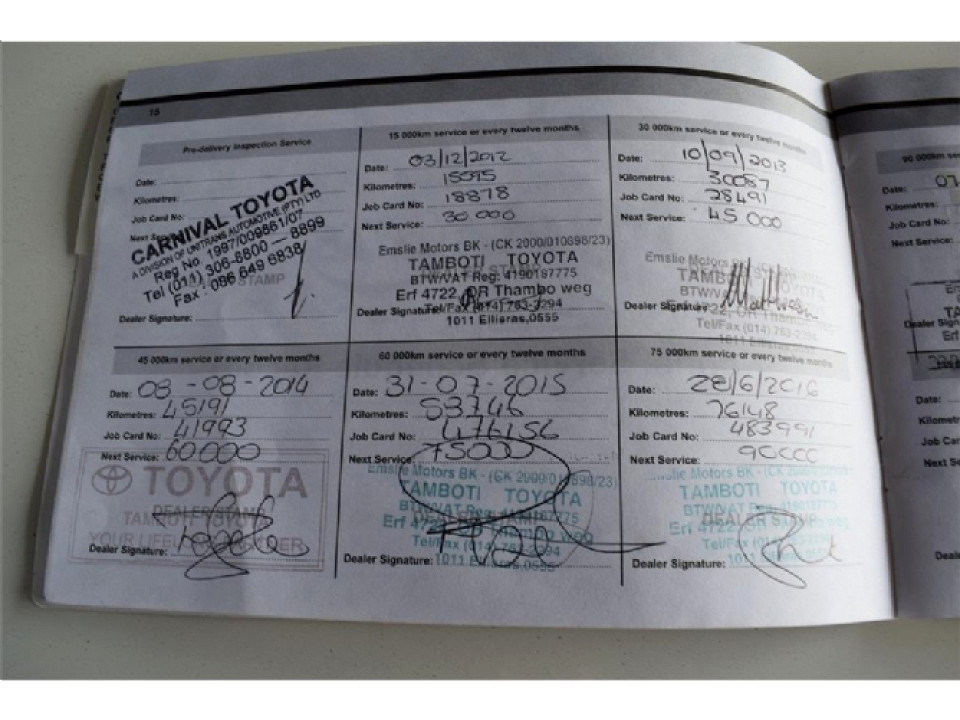 15
Pre-delivery Inspection Service
Date:
Kilometres:
Job Card No:
Next Service:
CARNIVAL TOYOTA
A DIVISION OF UNITRANS AUTOMOTIVE (PTY) LTD
Reg No 1997/009861/07
Tel (011) 306-8800 — 8899
Fax - 086 649 6838
STAMP
Dealer Signature:
15 000km service or every twelve months
Date: 03/12/2012
Kilometres: 15595
Job Card No: 18878
Next Service: 30.000
Emslie Motors BK - (CK 2000/010698/23)
TAMBOTI TOYOTA
BTW/VAT Reg: 4190187775
Erf 4722, OR Thambo weg
Tel/Fax (014) 763-2294
Dealer Signature:
1011 Ellisras,0555
30 000km service or every twelve months
Date: 10/09/2013
Kilometres: 30087
Job Card No: 28491
Next Service: 45 000
Emslie Motors BK - (CK 2000/0
TAMB
BTW/V
Dealer Signature:
Tel/Fax (014) 763-2294
1011 Ellisras,0555
45 000km service or every twelve months
Date: 08-08-2014
Kilometres: 45191
Job Card No: 41993
Next Service: 60000
TOYOTA
DEALER STAMP
TAMBOTI TOYOTA
YOUR LIFELONG PARTNER
Dealer Signature:
60 000km service or every twelve months
Date: 31-07-2015
Kilometres: 53746
Job Card No: 476156
Next Service: 75000
Emslie Motors BK - (CK 2000/010698/23)
TAMBOTI TOYOTA
BTW/VAT Reg: 4190187775
Erf 4722, OR Thambo weg
Tel/Fax (014) 763-2294
Dealer Signature: 1011 Ellisras,0555
75 000km service or every twelve months
Date: 28/6/2016
Kilometres: 76148
Job Card No: 483991
Next Service: 90000
Emslie Motors BK - (CK 2000/010698/23)
TAMBOTI TOYOTA
BTW/VAT Reg: 4190187775
DEALER STAMP
Erf 4722, OR Thambo weg
Tel/Fax (014) 763-2294
Dealer Signature: 1011 Ellisras,0555
90 000km
Date: 07
Kilometres
Job Card No:
Next Se
Dealer Sign
Erf
Date:
Kilomet
Job Car
Next Se
Dealer